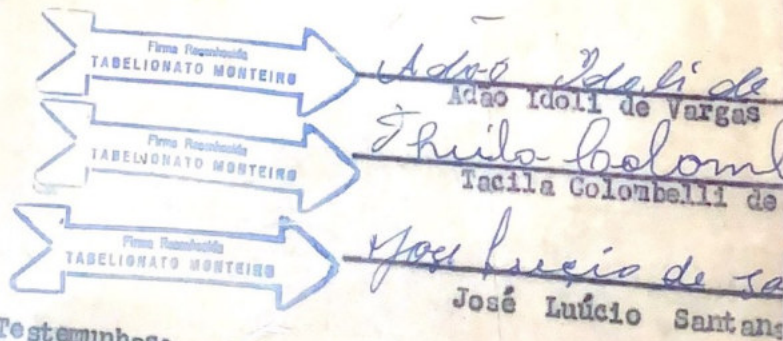 Firma Reconhecida
TABELIONATO MONTEIRO
Adão Idoli de
Adão Idoli de Vargas
Firma Reconhecida
TABELIONATO MONTEIRO
Colomb
Tacila Colombelli de
Firma Reconhecida
TABELIONATO MONTEIRO
José Lucio de Sa
José Luúcio Santan
Testemunhas